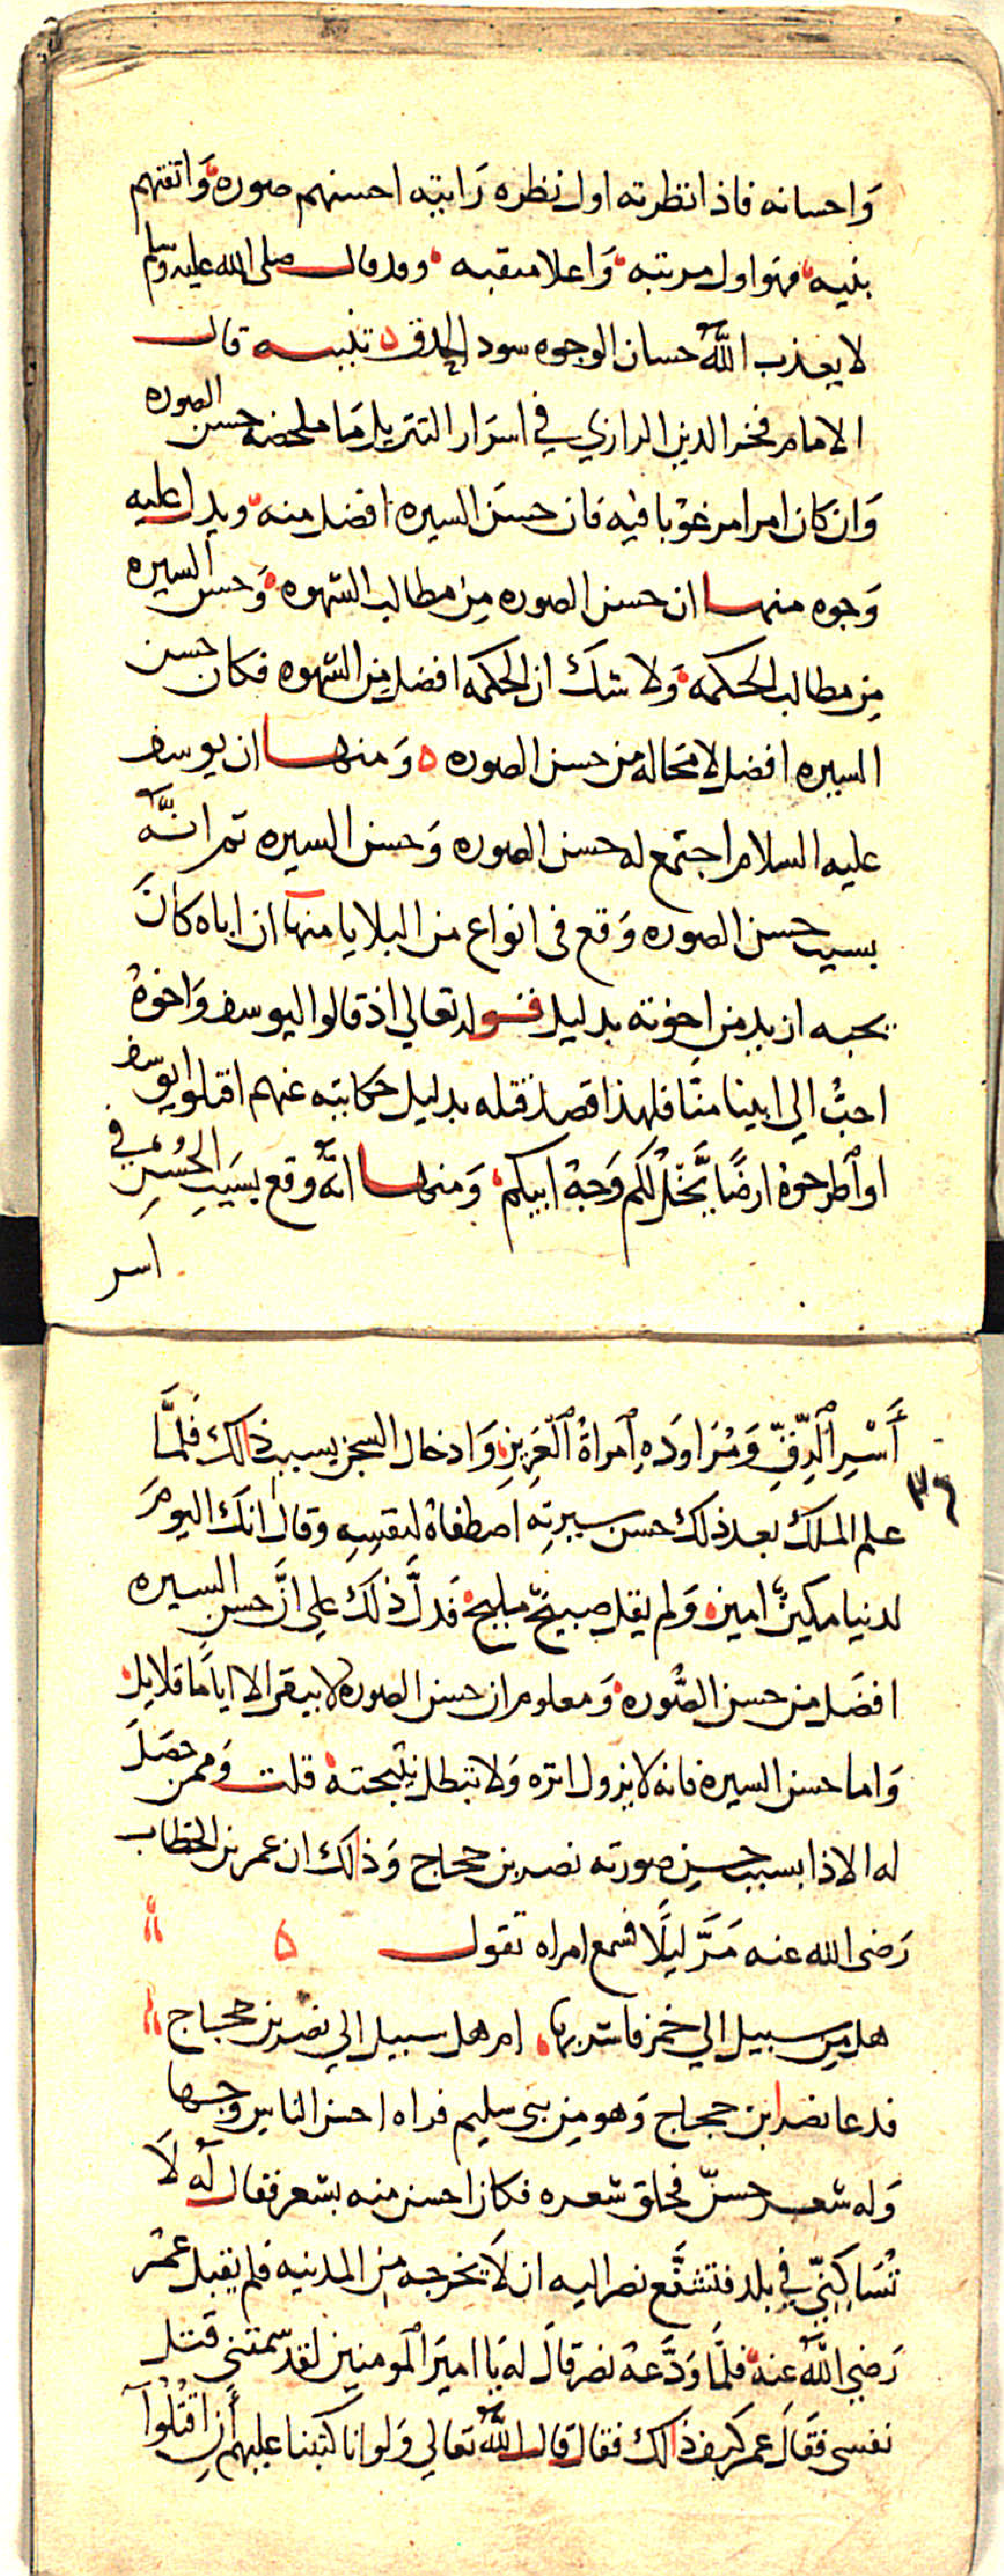 واحسانه فاذا نظرته اول نظره رايته احسنهم صوره واتقنهم
بنيه فهو اول مرتبه واعلا منقبه وقد قال صلى الله عليه وسلم
لا يعذب الله حسان الوجوه سود الحدق تنبيه قال
الامام فخر الدين الرازي في اسرار التنزيل ما ملخصه حسن الصوره
وان كان امرا مرغوبا فيه فان حسن السيره افضل منه ويدل عليه
وجوه منها ان حسن الصوره من مطالب الشهوه وحسن السيره
من مطالب الحكمه ولا شك ان الحكمه افضل من الشهوه فكان حسن
السيره افضل لا محالة من حسن الصوره ه ومنها ان يوسف
عليه السلام اجتمع له حسن الصوره وحسن السيره ثم انه
بسبب حسن الصوره وقع في انواع من البلايا منها ان اباه كان
يحبه ازيد من اخوته بدليل قوله تعالي اذ قالوا ليوسف واخوه
احب الي ابينا منا فلهذا قصد قتله بدليل حكايته عنهم اقتلوا يوسف
او اطرحوه ارضا يخل لكم وجه ابيكم ومنها انه وقع بسبب الحسن في
اسر
أسر الرق ومراوده امراة العزيز وادخال السجن بسبب ذالك فلما
٣٦
علم الملك بعد ذلك حسن سيرته اصطفاه لنفسه وقال انك اليوم
لدينا مكين امين ولم يقل صبيح مليح فدل ذلك علي ان حسن السيره
افضل من حسن الصوره ومعلوم ان حسن الصوره لا يبقى الا اياما قلايل
واما حسن السيره فانه لا يزول اثره ولا تبطل نتيجته قلت وممن حصل
له الاذا بسبب حسن صورته نصر بن حجاج وذالك ان عمر بن الخطاب
رضى الله عنه مر ليلا فسمع امراه تقول ه
هل من سبيل الي خمر فاشربها ام هل سبيل الي نصر بن حجاج
فدعا نصر ابن حجاج وهو من بني سليم فراه احسن الناس وجها
وله شعر حسن فحلق شعره فكان احسن منه بشعر فقال له لا
تساكنني في بلد فتشفع نصر اليه ان لا يخرجه من المدينه فلم يقبل عمر
رضي الله عنه فلما ودعه نصر قال له يا امير المومنين لقد سمتني قتل
نفسى فقال عمر كيف ذالك فقال قال الله تعالي ولو انا كتبنا عليهم أن اقتلوا